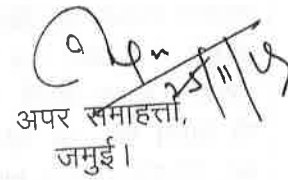 25/11/15
अपर समाहर्त्ता,
जमुई।